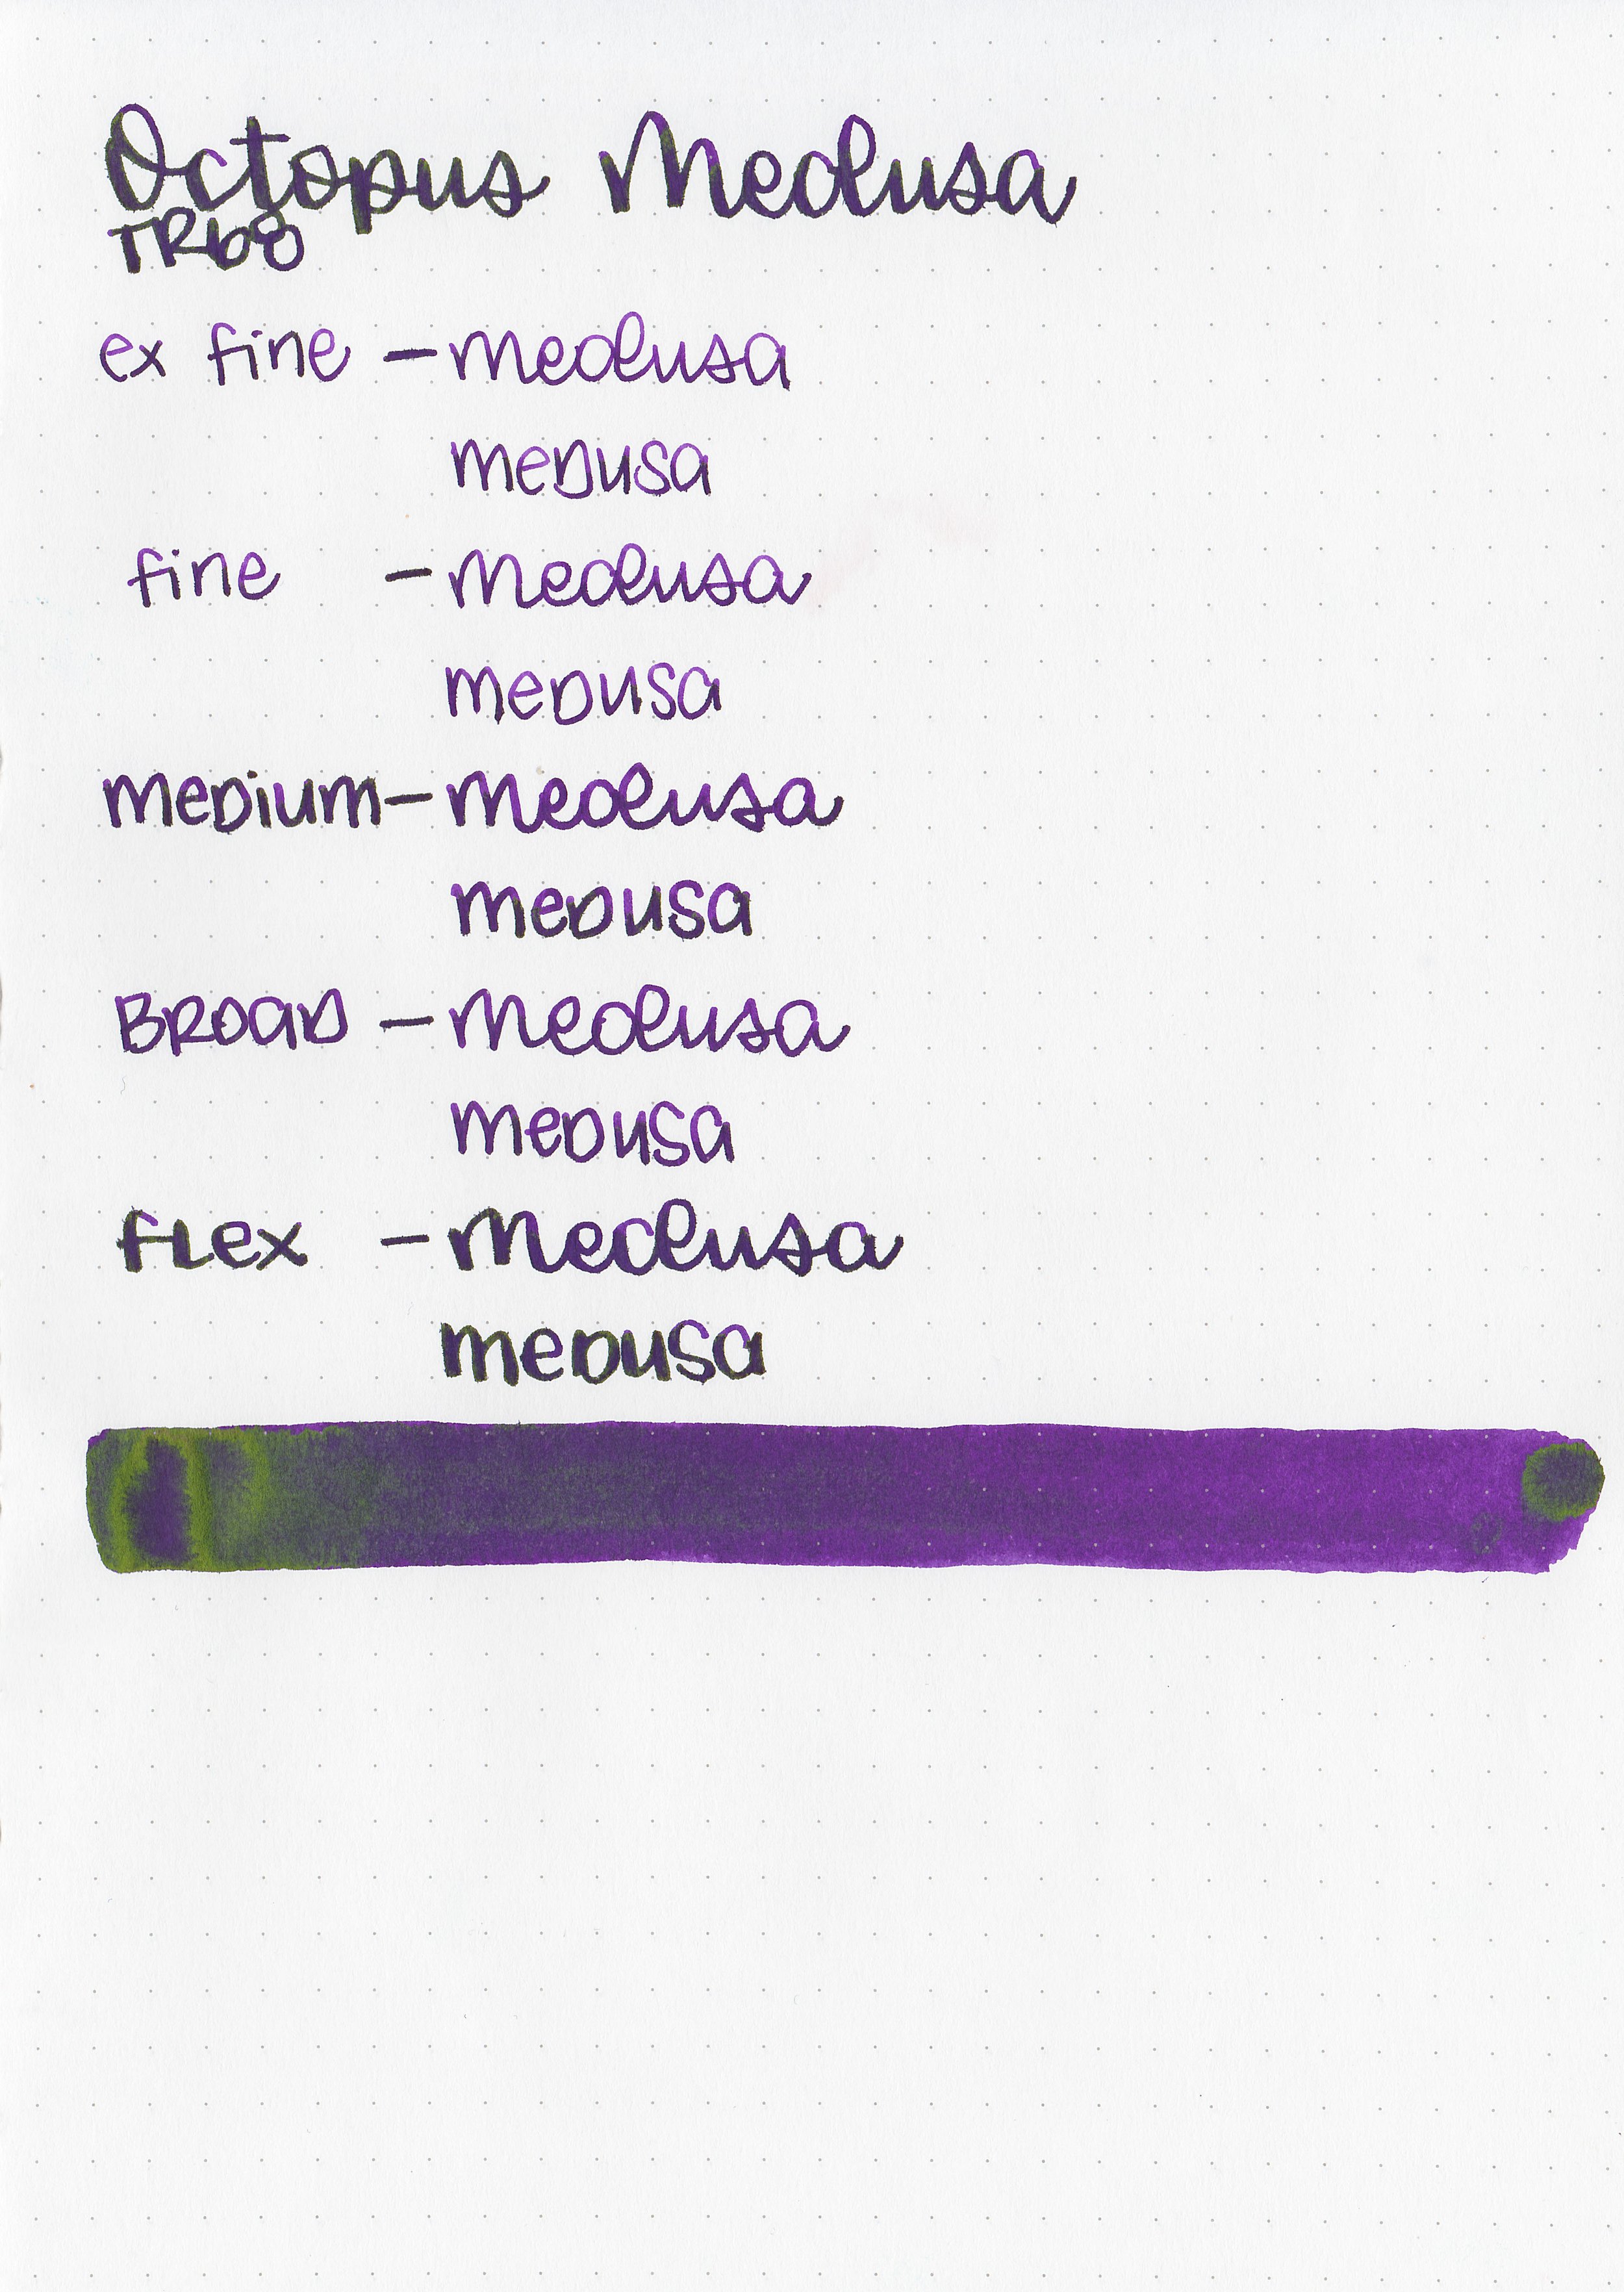 Octopus Medusa
TR68
ex fine - medusa
meDusa
fine - medusa
meDusa
meDium - medusa
meDusa
BROaD - medusa
meDusa
fLex - medusa
meDusa